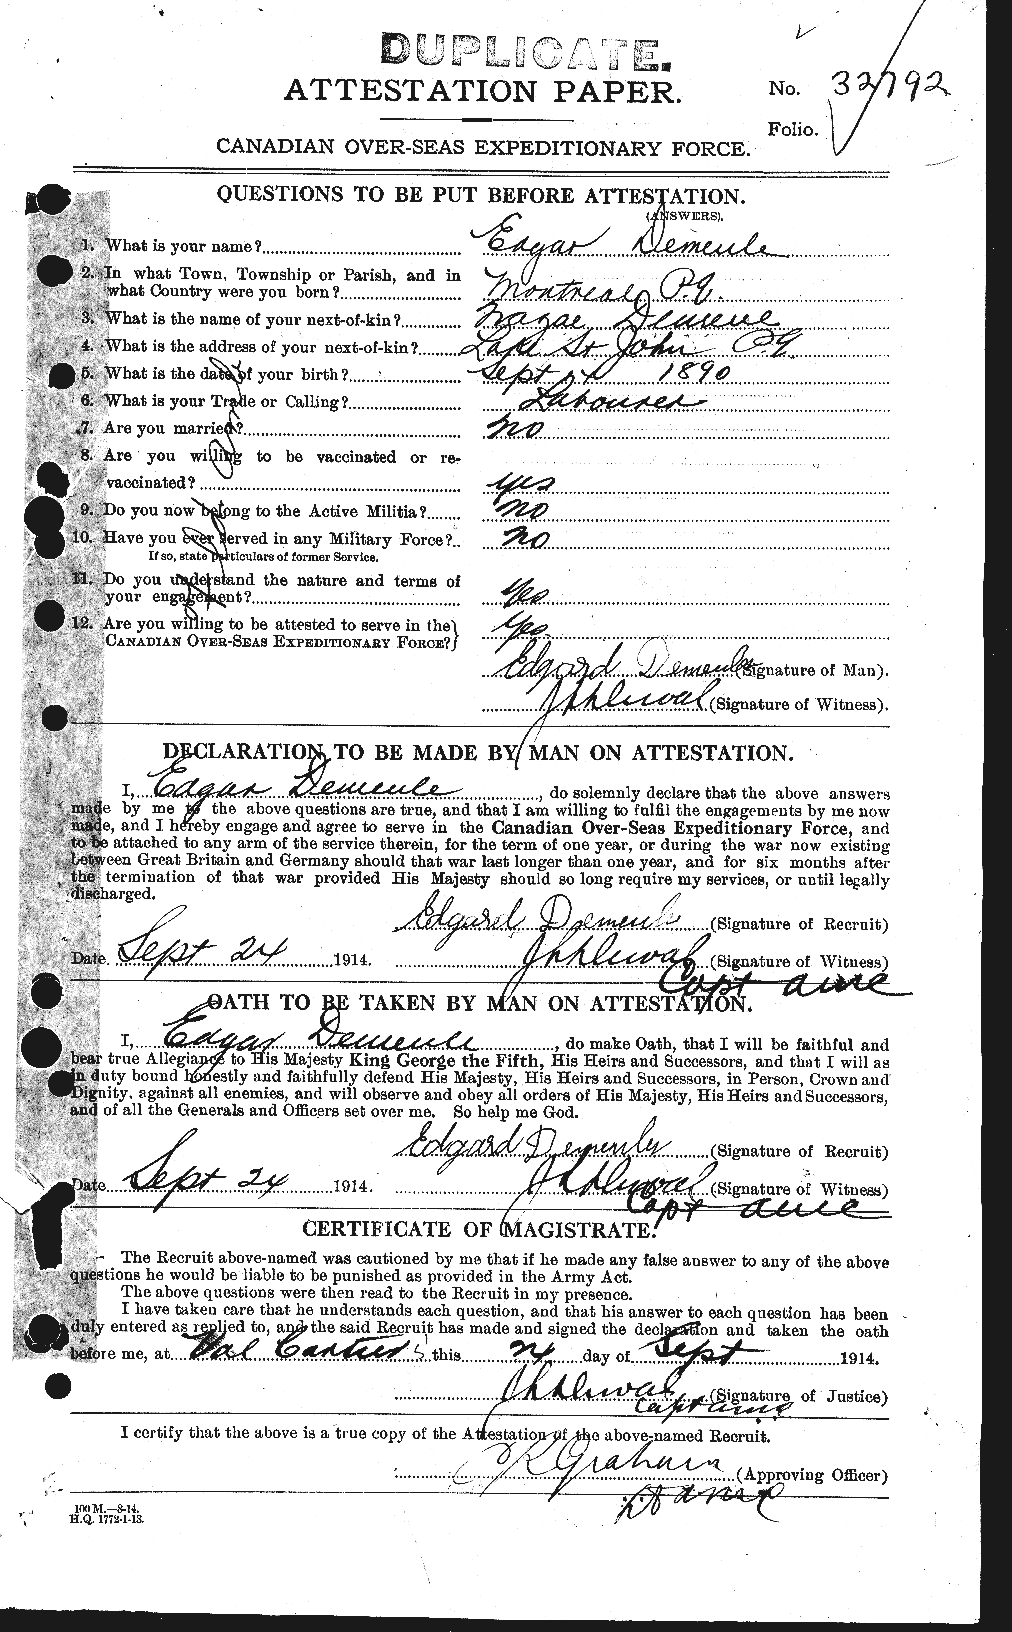 DUPLICATE.
ATTESTATION PAPER.
No. 32792
Folio.
CANADIAN OVER-SEAS EXPEDITIONARY FORCE.
QUESTIONS TO BE PUT BEFORE ATTESTATION.
(ANSWERS).
1. What is your name? Edgar Demeule
2. In what Town, Township or Parish, and in
what Country were you born? Montreal P.Q.
3. What is the name of your next-of-kin? Demeule
4. What is the address of your next-of-kin? Lake St John P.Q.
5. What is the date of your birth? Sept 1890
6. What is your Trade or Calling? Labourer
7. Are you married? No
8. Are you willing to be vaccinated or re-
vaccinated? yes
9. Do you now belong to the Active Militia? No
10. Have you ever served in any Military Force? No
If so, state particulars of former Service.
11. Do you understand the nature and terms of
your engagement? Yes
12. Are you willing to be attested to serve in the
CANADIAN OVER-SEAS EXPEDITIONARY FORCE? Yes
Edgard Demeule (Signature of Man).
(Signature of Witness).
DECLARATION TO BE MADE BY MAN ON ATTESTATION.
I, Edgar Demeule, do solemnly declare that the above answers
made by me to the above questions are true, and that I am willing to fulfil the engagements by me now
made, and I hereby engage and agree to serve in the Canadian Over-Seas Expeditionary Force, and
to be attached to any arm of the service therein, for the term of one year, or during the war now existing
between Great Britain and Germany should that war last longer than one year, and for six months after
the termination of that war provided His Majesty should so long require my services, or until legally
discharged.
Edgard Demeule (Signature of Recruit)
Date. Sept 24 1914. (Signature of Witness)
Capt
OATH TO BE TAKEN BY MAN ON ATTESTATION.
I, Edgar Demeule, do make Oath, that I will be faithful and
bear true Allegiance to His Majesty King George the Fifth, His Heirs and Successors, and that I will as
in duty bound honestly and faithfully defend His Majesty, His Heirs and Successors, in Person, Crown and
Dignity, against all enemies, and will observe and obey all orders of His Majesty, His Heirs and Successors,
and of all the Generals and Officers set over me. So help me God.
Edgard Demeule (Signature of Recruit)
Date. Sept 24 1914. (Signature of Witness)
Capt
CERTIFICATE OF MAGISTRATE.
The Recruit above-named was cautioned by me that if he made any false answer to any of the above
questions he would be liable to be punished as provided in the Army Act.
The above questions were then read to the Recruit in my presence.
I have taken care that he understands each question, and that his answer to each question has been
duly entered as replied to, and the said Recruit has made and signed the declaration and taken the oath
before me, at Val Cartier, this 24 day of Sept 1914.
(Signature of Justice)
Capt
I certify that the above is a true copy of the Attestation of the above-named Recruit.
Graham (Approving Officer)
100 M.—8-14.
H.Q. 1772-1-13.